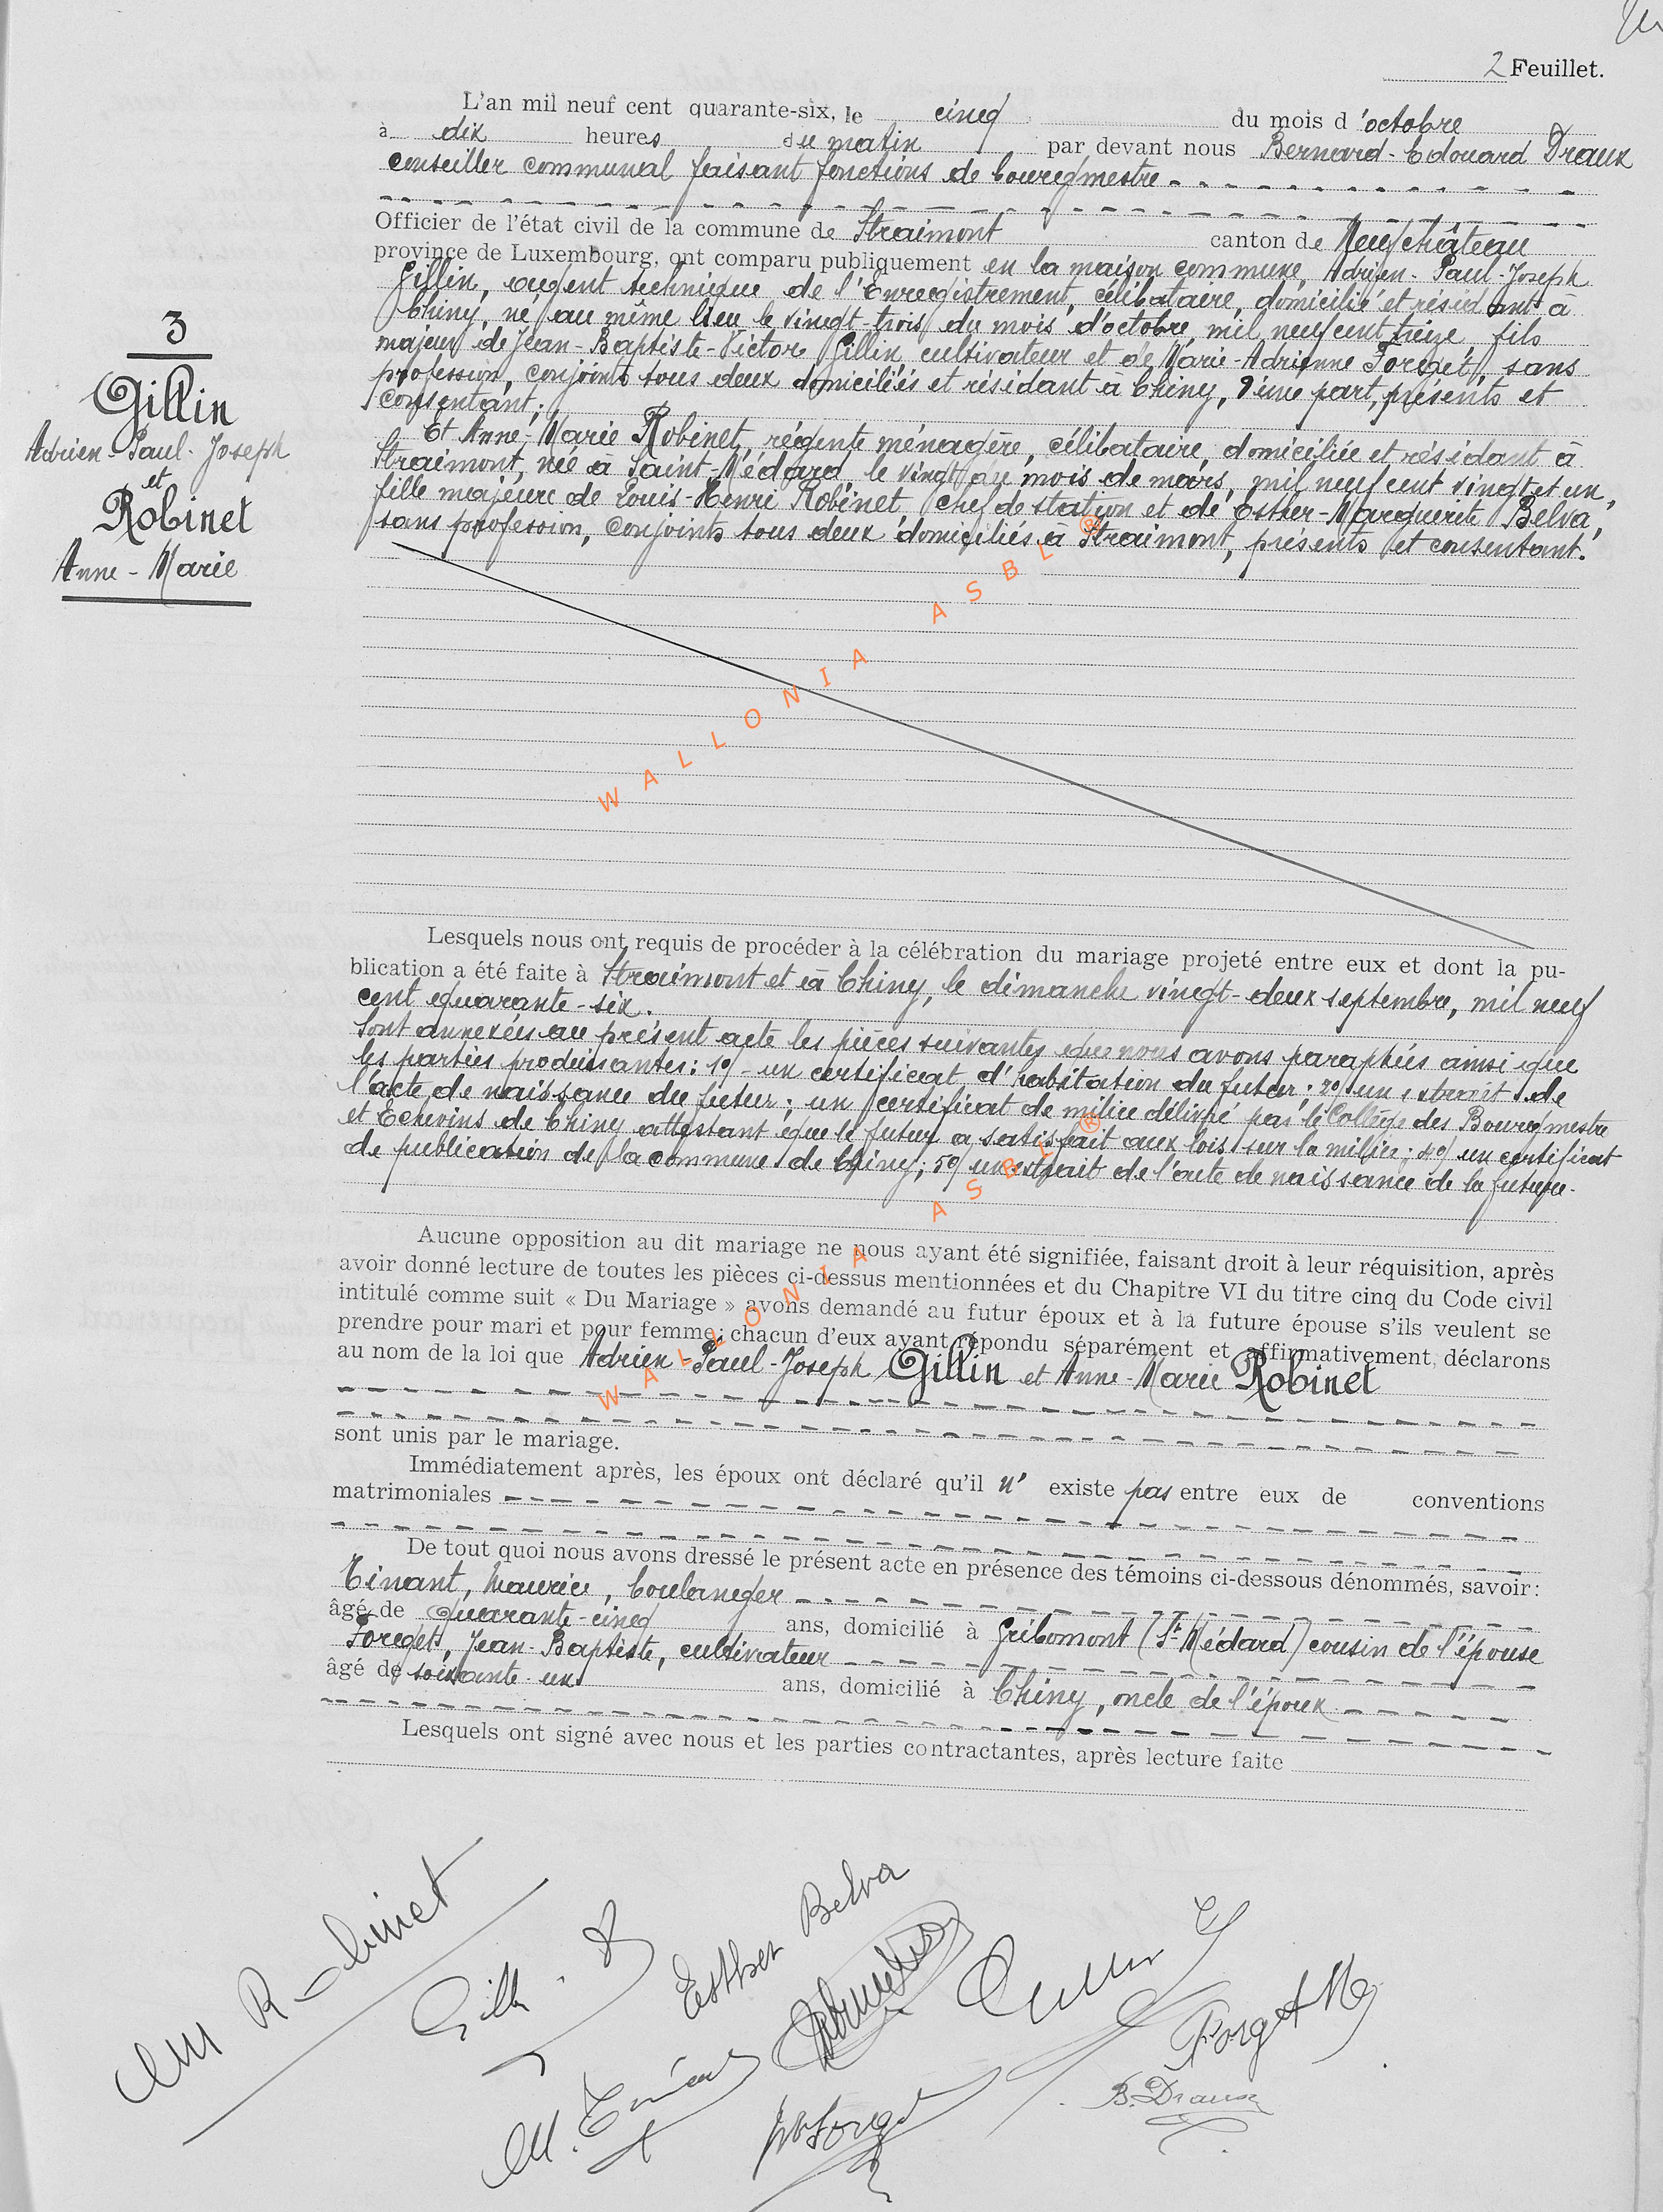 2 Feuillet.
L'an mil neuf cent quarante-six, le cinq du mois d'octobre
à dix heures du matin par devant nous Bernard-Edouard Draux
conseiller communal faisant fonctions de bourgmestre
Officier de l'état civil de la commune de Straimont canton de Neufchâteau
province de Luxembourg, ont comparu publiquement en la maison commune, Adrien-Paul-Joseph
Gillin, agent technique de l'Enregistrement, célibataire, domicilié et résidant à
Chiny, né au même lieu le vingt-trois du mois d'octobre, mil neuf cent treize, fils
majeur de Jean-Baptiste-Victor Gillin cultivateur et de Marie-Adrienne Forget, sans
profession, conjoints tous deux domiciliés et résidant à Chiny, d'une part, présents et
consentant;
3
Gillin
Adrien-Paul-Joseph
et
Robinet
Anne-Marie
Et Anne-Marie Robinet, régente ménagère, célibataire, domiciliée et résidant à
Straimont, née à Saint-Médard, le vingt du mois de mars, mil neuf cent vingt et un,
fille majeure de Louis-Henri Robinet chef de station et de Esther-Marguerite Belva,
sans profession, conjoints tous deux domiciliés à Straimont, présents et consentant.
WALLONIA ASBL ®
Lesquels nous ont requis de procéder à la célébration du mariage projeté entre eux et dont la pu-
blication a été faite à Straimont et à Chiny, le dimanche vingt-deux septembre, mil neuf
cent quarante-six.
Sont annexées au présent acte les pièces suivantes que nous avons paraphées ainsi que
les parties produisantes: 1°/ - un certificat d'habitation du futur; 2°/ un extrait de
l'acte de naissance du futur; un certificat de milice délivré par le Collège des Bourgmestre
et Echevins de Chiny attestant que le futur a satisfait aux lois sur la milice; 4°/ un certificat
de publication de la commune de Chiny; 5°/ un extrait de l'acte de naissance de la future.
Aucune opposition au dit mariage ne nous ayant été signifiée, faisant droit à leur réquisition, après
avoir donné lecture de toutes les pièces ci-dessus mentionnées et du Chapitre VI du titre cinq du Code civil
intitulé comme suit « Du Mariage » avons demandé au futur époux et à la future épouse s'ils veulent se
prendre pour mari et pour femme; chacun d'eux ayant répondu séparément et affirmativement, déclarons
au nom de la loi que Adrien-Paul-Joseph Gillin et Anne-Marie Robinet
WALLONIA ASBL ®
sont unis par le mariage.
Immédiatement après, les époux ont déclaré qu'il n' existe pas entre eux de conventions
matrimoniales
De tout quoi nous avons dressé le présent acte en présence des témoins ci-dessous dénommés, savoir:
Tinant, Maurice, boulanger
âgé de quarante-cinq ans, domicilié à Gribomont (St-Médard) cousin de l'épouse
Forget, Jean-Baptiste, cultivateur
âgé de soixante-un ans, domicilié à Chiny, oncle de l'époux
Lesquels ont signé avec nous et les parties contractantes, après lecture faite
AM Robinet
Esther Belva
M. Tinant
Forget M
B. Draux